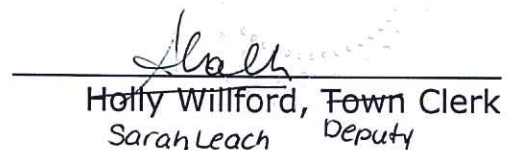 Holly Willford, Town Clerk
Sarah Leach Deputy